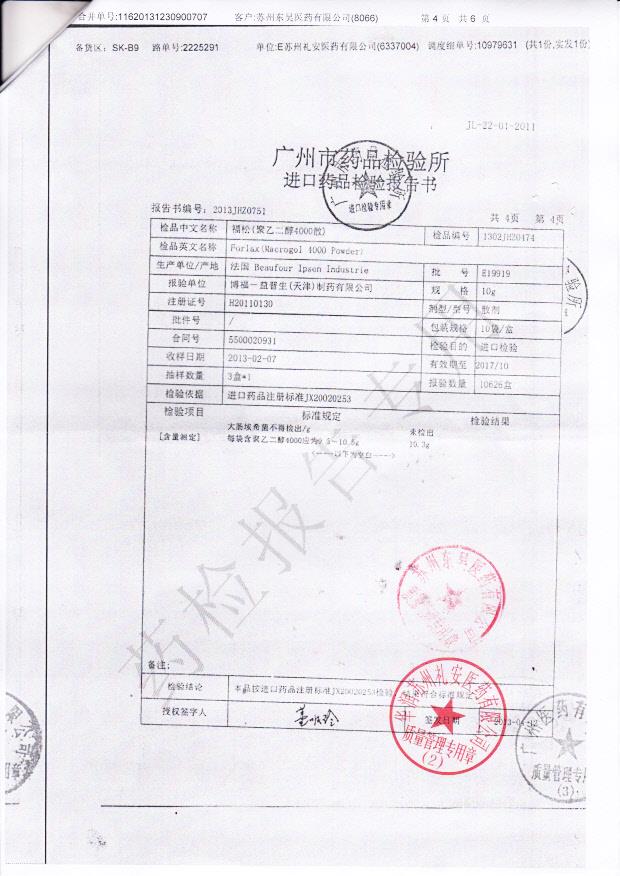 合并单号:11620131230900707 客户:苏州东吴医药有限公司(8066) 第 4 页 共 6 页
备货区: SK-B9 路单号:2225291 单位:E苏州礼安医药有限公司(6337004) 调度组单号:10979631 (共1份,实发1份)
JL-22-01-2011
广州市药品检验所
进口药品检验报告书
进口检验专用章
报告书编号: 2013JHZ0751 共 4页 第 4页
检品中文名称 福松(聚乙二醇4000散) 检品编号 1302JH20474
检品英文名称 Forlax(Macrogol 4000 Powder)
生产单位/产地 法国 Beaufour Ipsen Industrie 批 号 E19919
报验单位 博福－益普生(天津)制药有限公司 规 格 10g
注册证号 H20110130 剂型/型号 散剂
批件号 / 包装规格 10袋/盒
合同号 5500020931 检验目的 进口检验
收样日期 2013-02-07 有效期至 2017/10
抽样数量 3盒*1 报验数量 10626盒
检验依据 进口药品注册标准JX20020253
检验项目 标准规定 检验结果
大肠埃希菌不得检出/g 未检出
[含量测定] 每袋含聚乙二醇4000应为9.5～10.5g 10.3g
<----以下为空白---->
药检报告专用
苏州东吴医药有限公司
备注:
检验结论 本品按进口药品注册标准JX20020253检验,结果符合标准规定
授权签字人 签发日期
华润苏州礼安医药有限公司
质量管理专用章
(2)
质量管理专用
(3)